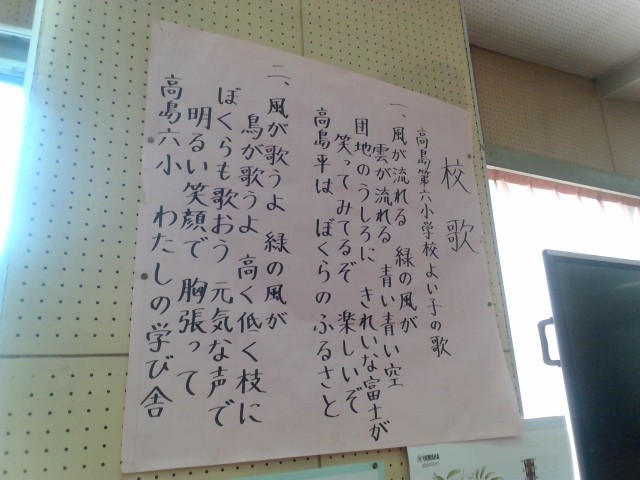 校歌
高島第六小学校よい子の歌
一、風が流れる 緑の風が
雲が流れる 青い青い空
団地のうしろに きれいな富士が
笑ってみてるぞ 楽しいぞ
高島平は ぼくらのふるさと
二、風が歌うよ 緑の風が
鳥が歌うよ 高く低く枝に
ぼくらも歌おう 元気な声で
明るい笑顔で 胸張って
高島六小 わたしの学び舎
YAMAHA